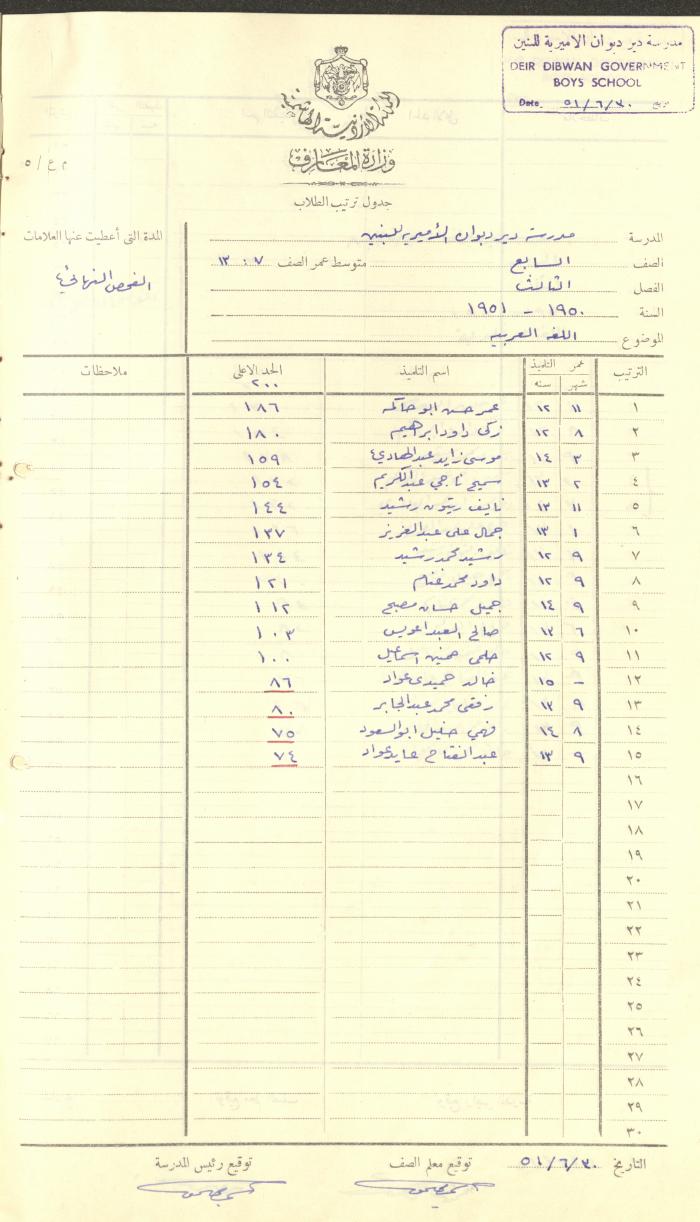 مدرسة دير دبوان الاميرية للبنين
DEIR DIBWAN GOVERNMENT
BOYS SCHOOL
Date. ٥١/٦/٣٠ تاريخ
المملكة الأردنية الهاشمية
وزارة المعارف
م ع / ٥
جدول ترتيب الطلاب
المدرسة مدرسة دير دبوان الأميرية للبنين
المدة التى أعطيت عنها العلامات
الصف السابع متوسط عمر الصف ٧ : ١٣
الفحص النهائي
الفصل الثالث
السنة ١٩٥٠ - ١٩٥١
الموضوع اللغة العربية
الترتيب عمر التلميذ اسم التلميذ الحد الاعلى ملاحظات
شهر سنه ٢٠٠
١ ١١ ١٢ عمر حسن ابو حاكمه ١٨٦
٢ ٨ ١٢ زكي داود ابراهيم ١٨٠
٣ ٣ ١٤ موسى زايد عبد الهادي ١٥٩
٤ ٢ ١٣ سميح ناجي عبد الكريم ١٥٤
٥ ١١ ١٣ نايف زيتون رشيد ١٤٤
٦ ١ ١٣ جمال على عبد العزيز ١٣٧
٧ ٩ ١٢ رشيد محمد رشيد ١٣٤
٨ ٩ ١٢ داود محمد غنام ١٢١
٩ ٩ ١٤ جميل حسان مصبح ١١٢
١٠ ٦ ١٣ صالح العبد اعويس ١٠٣
١١ ٩ ١٢ حلمى حسنين اسماعيل ١٠٠
١٢ - ١٥ خالد حميدى عواد ٨٦
١٣ ٩ ١٣ رفقى محمد عبد الجابر ٨٠
١٤ ٨ ١٤ فهمي خليل ابو السعود ٧٥
١٥ ٩ ١٣ عبد الفتاح عايد عواد ٧٤
١٦
١٧
١٨
١٩
٢٠
٢١
٢٢
٢٣
٢٤
٢٥
٢٦
٢٧
٢٨
٢٩
٣٠
التاريخ ٥١/٦/٣٠ توقيع معلم الصف توقيع رئيس المدرسة